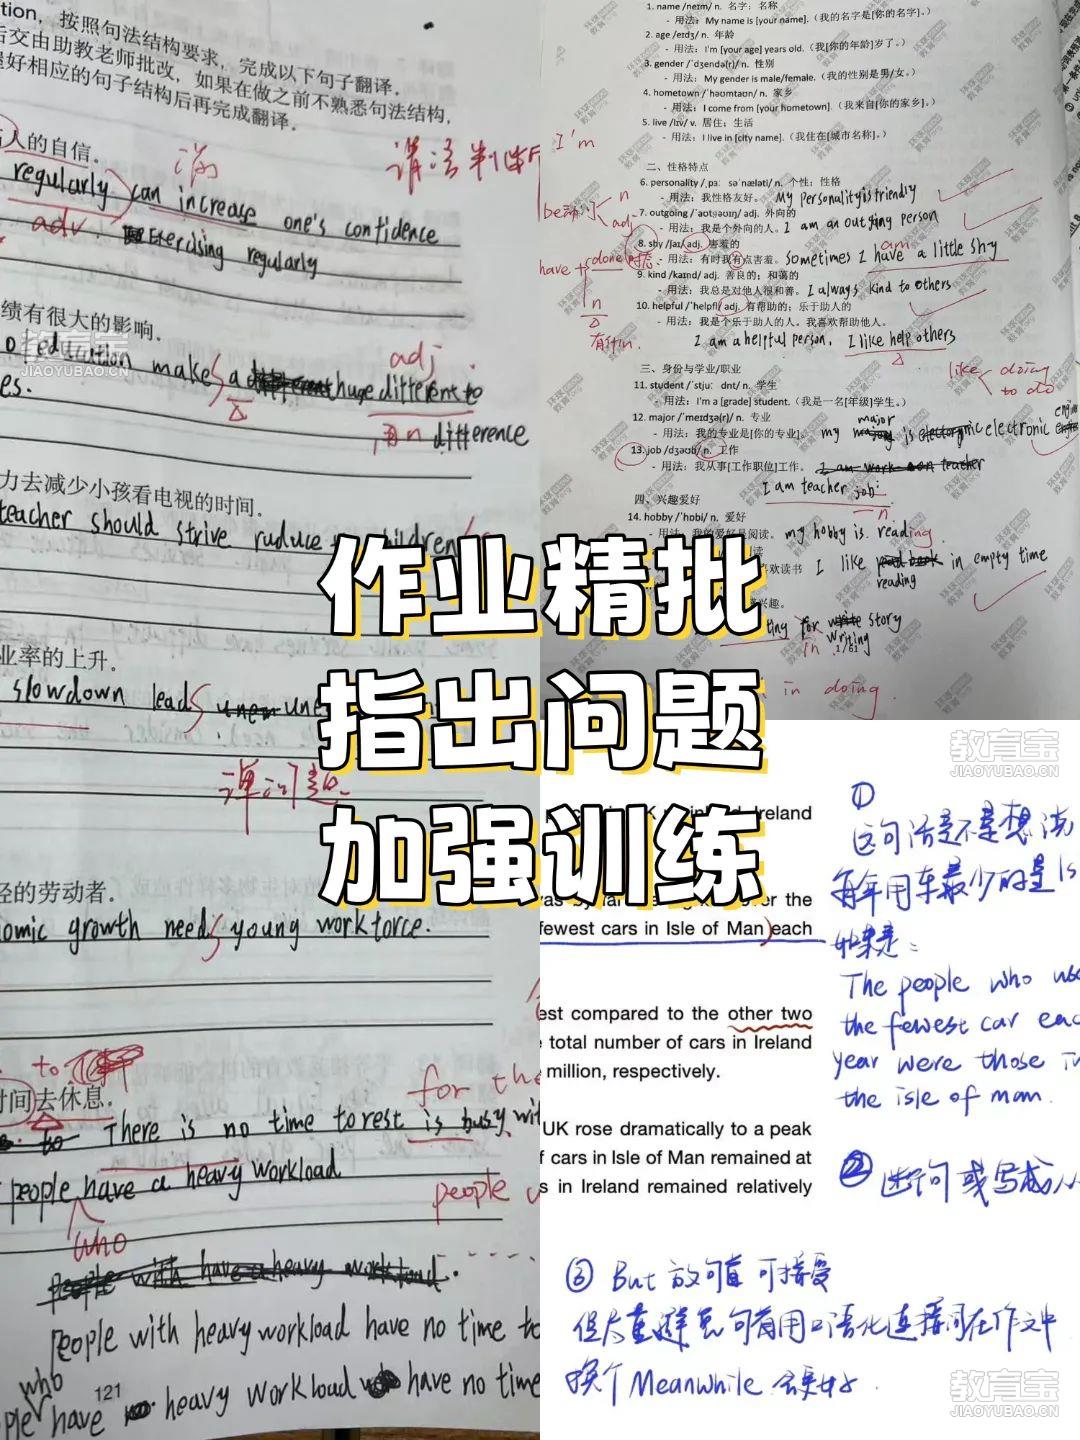 ation，按照句法结构要求，完成以下句子翻译.
后交由助教老师批改，如果在做之前不熟悉句法结构，
握好相应的句子结构后再完成翻译.
人的自信.
regularly can increase one's confidence
adv.
Exercising regularly
绩有很大的影响.
education makes a huge different to
adj
n difference
es.
力去减少小孩看电视的时间.
teacher should strive ruduce children
业率的上升.
slowdown leads
经的劳动者.
nomic growth needs young workforce.
to
时间去休息.
for the
There is no time to rest is busy with
people have a heavy workload
people
who
People with heavy workload have no time to
who
ple have heavy workload have no time
121
教育宝
JIAOYUBAO.CN
1. name /neɪm/ n. 名字；名称
- 用法：My name is [your name].（我的名字是[你的名字]。）
2. age /eɪdʒ/ n. 年龄
- 用法：I'm [your age] years old.（我[你的年龄]岁了。）
3. gender /ˈdʒendə(r)/ n. 性别
- 用法：My gender is male/female.（我的性别是男/女。）
4. hometown /ˈhəʊmtaʊn/ n. 家乡
- 用法：I come from [your hometown].（我来自[你的家乡]。）
5. live /lɪv/ v. 居住；生活
- 用法：I live in [city name].（我住在[城市名称]。）
I'm
二、性格特点
6. personality /ˌpɜːsəˈnæləti/ n. 个性；性格
- 用法：我性格友好。 My personality is friendly
7. outgoing /ˈaʊtɡəʊɪŋ/ adj. 外向的
- 用法：我是个外向的人。 I am an outgoing person
8. shy /ʃaɪ/ adj. 害羞的
- 用法：有时我有点害羞。 sometimes I have a little shy
am
9. kind /kaɪnd/ adj. 善良的；和蔼的
- 用法：我总是对他人很和善。 I always kind to others
10. helpful /ˈhelpfl/ adj. 有帮助的；乐于助人的
- 用法：我是个乐于助人的人。我喜欢帮助他人。
I am a helpful person, I like help others
like doing
to do
三、身份与学业/职业
11. student /ˈstjuːdnt/ n. 学生
- 用法：I'm a [grade] student.（我是一名[年级]学生。）
12. major /ˈmeɪdʒə(r)/ n. 专业
- 用法：我的专业是[你的专业]。 my major is electronic
13. job /dʒəʊb/ n. 工作
- 用法：我从事[工作职位]工作。 I am work on teacher
I am teacher job.
四、兴趣爱好
14. hobby /ˈhɒbi/ n. 爱好
- 用法：我的爱好是阅读。 my hobby is reading.
喜欢读书 I like reading in empty time
兴趣。
for writing story
in
1/61
in doing.
作业精批
指出问题
加强训练
教育宝
JIAOYUBAO.CN
Ireland
over the
fewest cars in Isle of Man each
est compared to the other two
total number of cars in Ireland
million, respectively.
UK rose dramatically to a peak
f cars in Isle of Man remained at
s in Ireland remained relatively
①
这句话是不是想说
每年用车最少的是Is
如果是：
The people who use
the fewest car each
year were those in
the isle of man.
② 断句或写成从
③ But 放句首可接受
但尽量避免句首用口语化连接词在作文中
换个 Meanwhile 会更好.
教育宝
JIAOYUBAO.CN